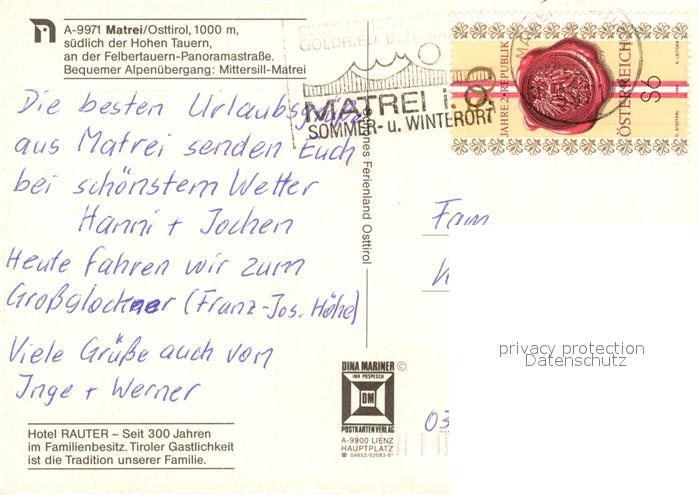 A-9971 Matrei/Osttirol, 1000 m,
südlich der Hohen Tauern,
an der Felbertauern-Panoramastraße.
Bequemer Alpenübergang: Mittersill-Matrei
GOLDRIED
MATREI i. O.
SOMMER- u. WINTERORT
JAHRE 2. REPUBLIK
ÖSTERREICH
S6
Die besten Urlaubsgrüße
aus Matrei senden Euch
bei schönstem Wetter
Hanni + Jochen
Heute fahren wir zum
Großglockner (Franz-Jos. Höhe)
Viele Grüße auch von
Inge + Werner
Ferienland Osttirol
Fam
privacy protection
Datenschutz
03
DINA MARINER ©
INH POSPESCH
DM
POSTKARTENVERLAG
A-9900 LIENZ
HAUPTPLATZ
Hotel RAUTER – Seit 300 Jahren
im Familienbesitz. Tiroler Gastlichkeit
ist die Tradition unserer Familie.